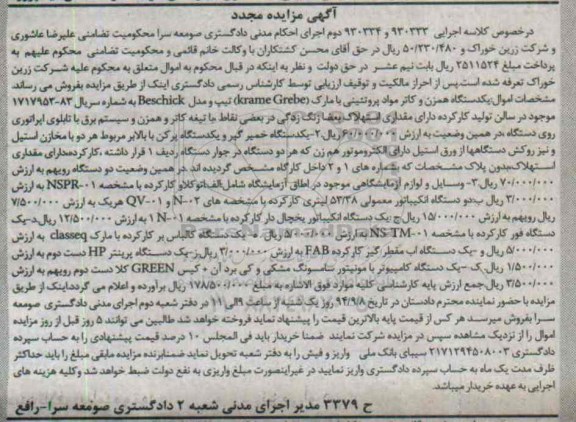 آگهی مزایده مجدد
درخصوص کلاسه اجرایی ۹۳۰۳۳۳ و ۹۳۰۳۳۴ دوم اجرای احکام مدنی دادگستری صومعه سرا محکومیت تضامنی علیرضا عاشوری
و شرکت زرین خوراک و ۵۰/۲۳۰/۴۸۰ ریال در حق آقای محسن کشتکاران با وکالت خانم قائمی و محکومیت تضامنی محکوم علیهم به
پرداخت مبلغ ۲۵۱۱۵۲۴ ریال بابت نیم عشر در حق دولت و نظر به اینکه در قبال محکوم به اموال متعلق به محکوم علیه شرکت زرین
خوراک تعرفه شده است پس از احراز مالکیت و توقیف ارزیابی توسط کارشناس رسمی دادگستری اینک از طریق مزایده بفروش می رساند.
مشخصات اموال:یکدستگاه همزن و کاتر مواد پروتئینی با مارک (krame Grebe) تیپ و مدل Beschick به شماره سریال ۸۳-۱۷۱۷۹۵۳
موجود در سالن تولید کارکرده دارای مقداری استهلاک بعضا زنگ زدگی در بعضی نقاط با تیغه کاتر و همزن و سیستم برق با تابلوی اپراتوری
روی دستگاه ،در همین وضعیت به ارزش ۶۰/۰۰۰/۰۰۰ ریال ۲-یکدستگاه خمیر گیر و یکدستگاه پرکن با بالابر مربوط هر دو با مخازن استیل
و نیز روکش دستگاهها از ورق استیل دارای الکتروموتور هم زن که هر دو دستگاه در جوار دستگاه ردیف ۱ قرار داشته ،کارکرده دارای مقداری
استهلاک بدون پلاک مشخصات که بشماره های ۱ و ۲ داخل کارگاه مشخص گردیده اند در همین وضعیت دو دستگاه رویهم به ارزش
۷۰/۰۰۰/۰۰۰ ریال ۳- وسایل و لوازم آزمایشگاهی موجود در اطاق آزمایشگاه شامل:الف:اتوکلاو کارکرده با مشخصه NSPR-۰۱ به ارزش
۳/۰۰۰/۰۰۰ ریال ب:دو دستگاه انکیباتور معمولی ۵۳/۳۸ لیتری کارکرده با مشخصه های N-۰۲ و QV-۰۱ هریک به ارزش ۷/۵۰۰/۰۰۰
ریال رویهم به ارزش ۱۵/۰۰۰/۰۰۰ ریال ج:یک دستگاه انکیباتور یخچال دار کارکرده با مشخصه N-۰۱ به ارزش ۱۲/۵۰۰/۰۰۰ ریال د-یک
دستگاه فور کارکرده با مشخصه NS-TM-۰۱ به ارزش ۵/۰۰۰/۰۰۰ ریال ه- یک دستگاه گیلاس پر کارکرده با مارک classeq به ارزش
۵/۰۰۰/۰۰۰ ریال و -یک دستگاه اب مقطر گیر کارکرده FAB به ارزش ۳/۰۰۰/۰۰۰ ریال ز-یک دستگاه پرینتر HP دست دوم به ارزش
۱/۵۰۰/۰۰۰ ریال ک -یک دستگاه کامپیوتر با مونیتور سامسونگ مشکی و کی برد آن + کیس GREEN کلا دست دوم رویهم به ارزش
۳/۵۰۰/۰۰۰ ریال جمع ارزش پایه کارشناسی کلیه موارد فوق الاشاره به مبلغ ۱۷۸/۵۰۰/۰۰۰ ریال برآورده و اعلام می گردد اینک از طریق
مزایده با حضور نماینده محترم دادستان در تاریخ ۹۴/۹/۸ روز یک شنبه از ساعت ۹ الی ۱۱ در دفتر شعبه دوم اجرای مدنی دادگستری صومعه
سرا بفروش میرسد هر کس از قیمت پایه بالاترین قیمت را پیشنهاد نماید فروخته خواهد شد طالبین می توانند ۵ روز قبل از روز مزایده
اموال را از نزدیک مشاهده سپس در مزایده شرکت نمایند ضمنا خریدار باید فی المجلس ۱۰ درصد قیمت پیشنهادی را به حساب سپرده
دادگستری ۲۱۷۱۲۹۴۵۰۸۰۰۳ سیبای بانک ملی واریز و فیش را به دفتر شعبه تحویل نماید ضمنا برنده مزایده مابقی مبلغ را باید حداکثر
ظرف مدت یک ماه به حساب سپرده دادگستری واریز نمایید در غیراینصورت مبلغ واریزی به نفع دولت ضبط خواهد شد و کلیه هزینه های
اجرایی به عهده خریدار میباشد.
ح ۳۳۷۹ مدیر اجرای مدنی شعبه ۲ دادگستری صومعه سرا-رافع